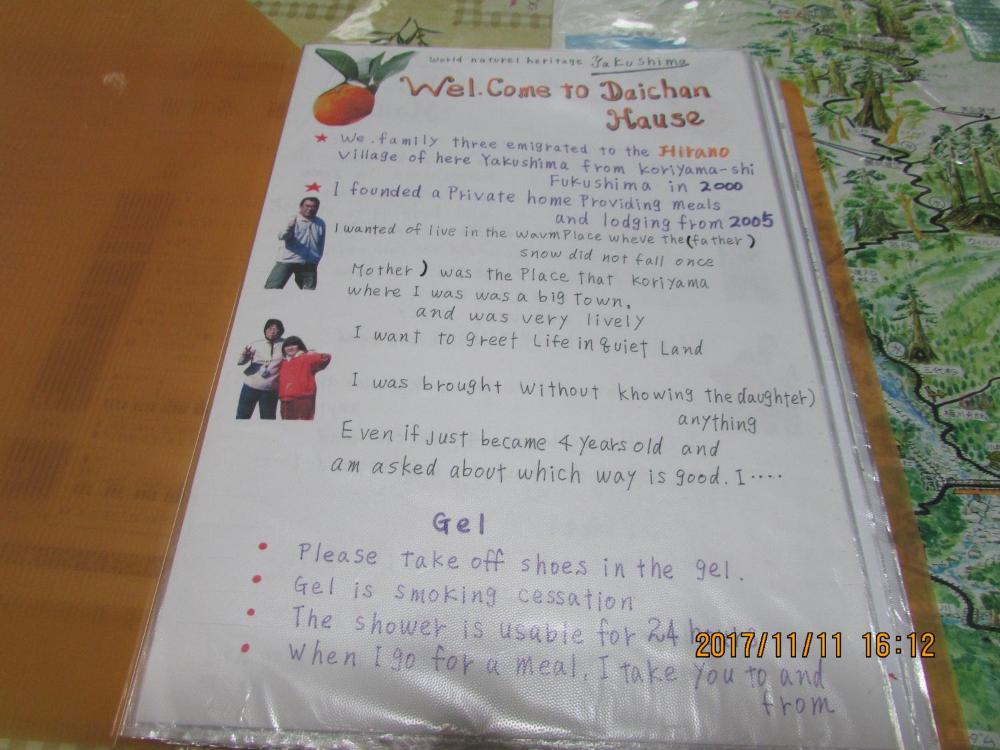 World naturel heritage Yakushima
Wel.Come to Daichan
Hause
★ We.family three emigrated to the Hirano
Village of here Yakushima from Koriyama-shi
Fukushima in 2000
★ I founded a Private home Providing meals
and lodging from 2005
I wanted of live in the wavm Place wheve the (father)
snow did not fall once
Mother) was the Place that Koriyama
where I was was a big Town.
and was very lively
I want to greet Life in quiet Land
I was brought Without khowing the daughter)
anything
Even if Just became 4 years old and
am asked about which way is good. I ····
Gel
• Please take off shoes in the gel.
• Gel is smoking cessation
• The shower is usable for 24
• When I go for a meal, I take you to and
from
2017/11/11 16:12